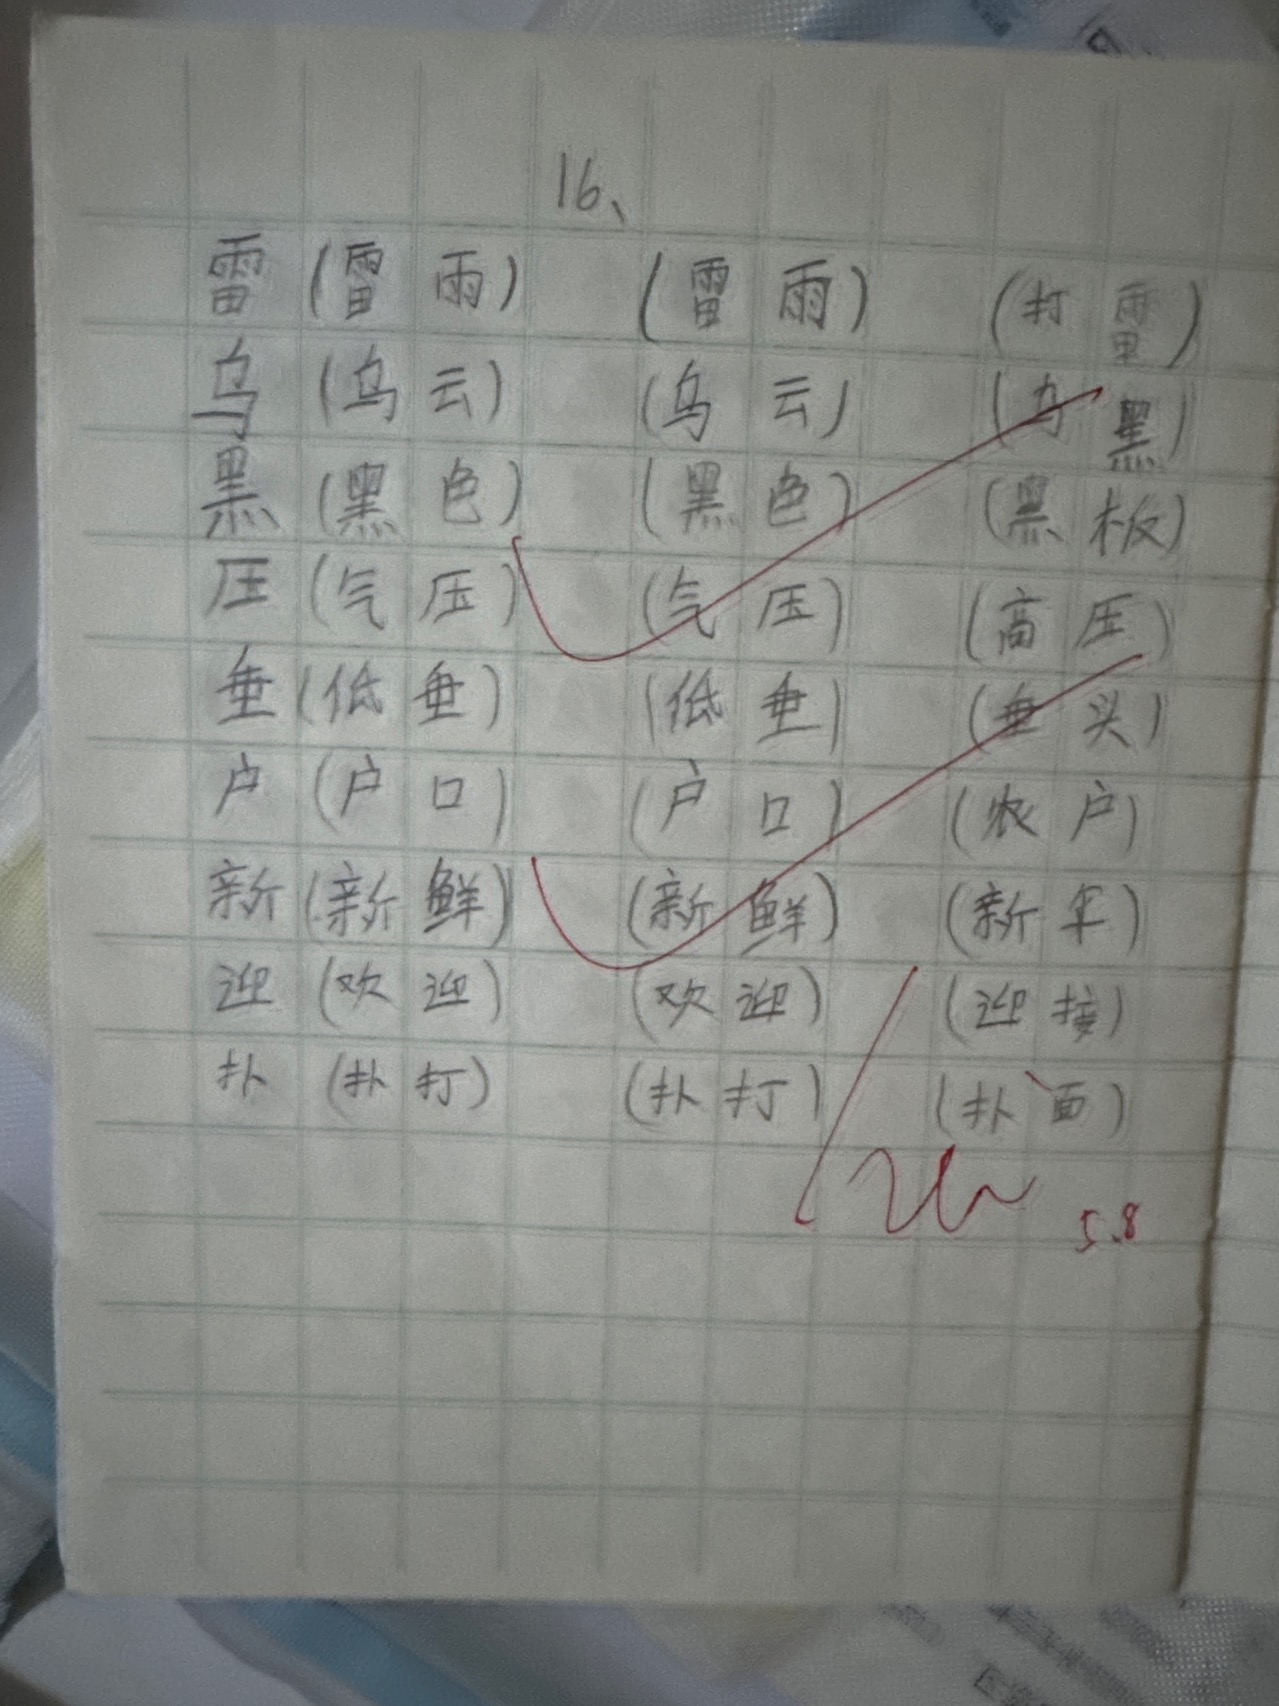 16、
雷 (雷雨) (雷雨) (打雷)
乌 (乌云) (乌云) (乌黑)
黑 (黑色) (黑色) (黑板)
压 (气压) (气压) (高压)
垂 (低垂) (低垂) (垂头)
户 (户口) (户口) (农户)
新 (新鲜) (新鲜) (新年)
迎 (欢迎) (欢迎) (迎接)
扑 (扑打) (扑打) (扑面)
5.8